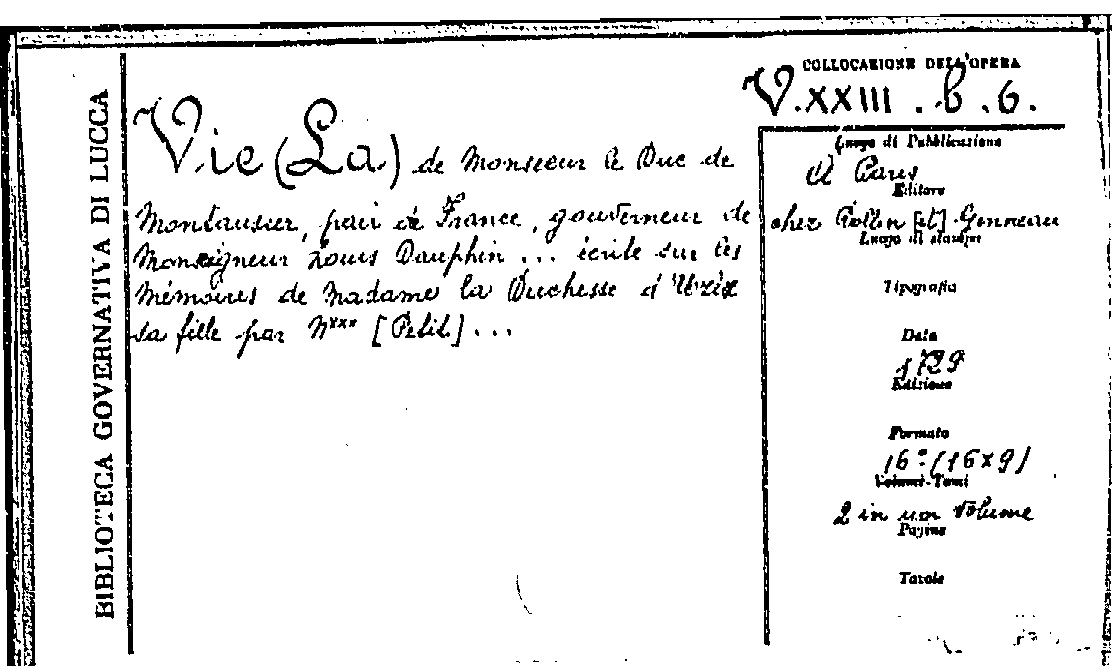 BIBLIOTECA GOVERNATIVA DI LUCCA
COLLOCAZIONE DELL'OPERA
V.XXIII.b.6.
Vie (La) de Monsieur le Duc de
Montausier, pair de France, gouverneur de
Monseigneur Louis Dauphin ... écrite sur les
Mémoires de Madame la Duchesse d'Uzès
sa fille par N*** [Petit] ...
Luogo di Pubblicazione
A Paris
Editore
chez Rollin [et] Genneau
Luogo di stampa
Tipografia
Data
1729
Edizione
Formato
16° (16x9)
Volumi-Tomi
2 in un volume
Pagine
Tavole